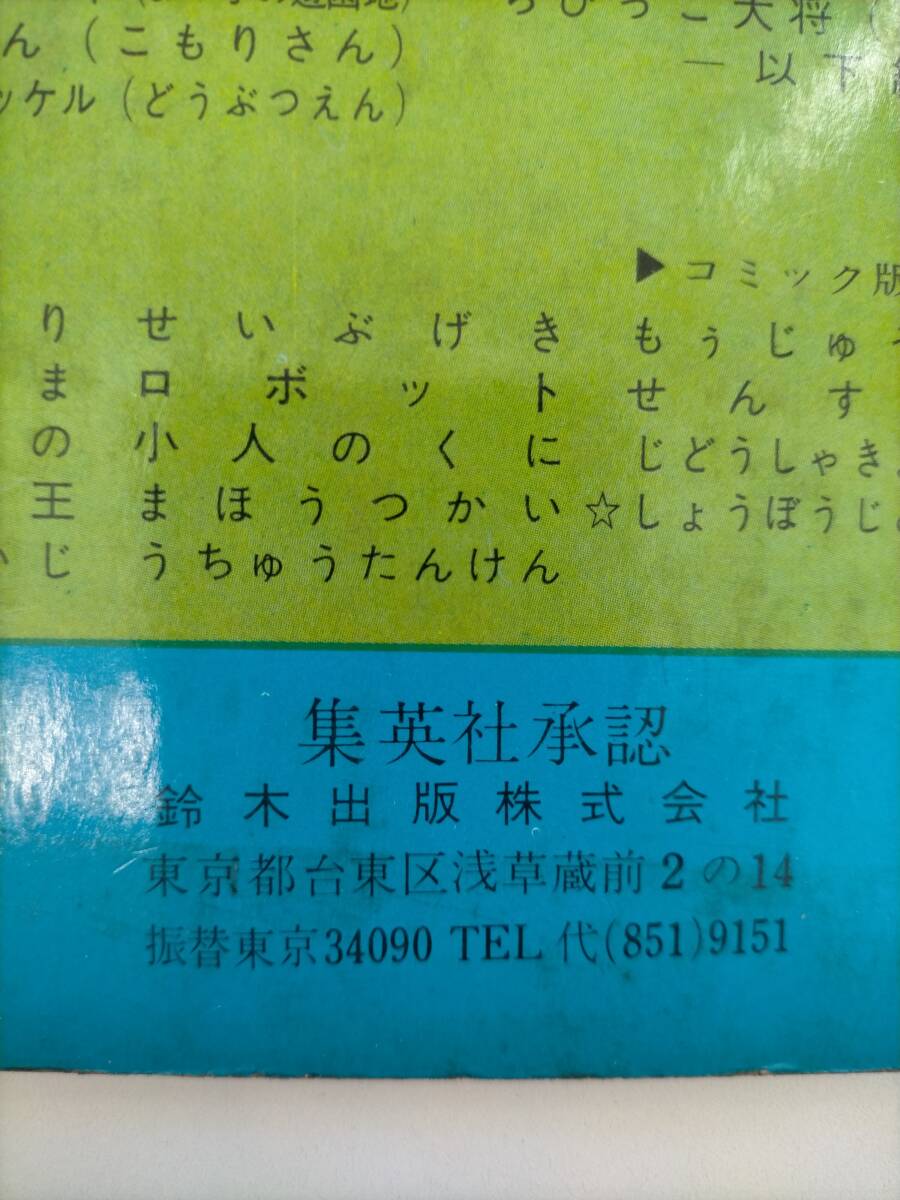 の遊園地)
ん(こもりさん)
ッケル(どうぶつえん)
ちびっこ大将(
―以下
▶コミック版
り せいぶげき もぅじゅ
ま ロボット せんす
の 小人のくに じどうしゃき
王 まほうつかい ☆しょうぼうじ
じ うちゅうたんけん
集英社承認
鈴木出版株式会社
東京都台東区浅草蔵前2の14
振替東京34090 TEL 代(851)9151